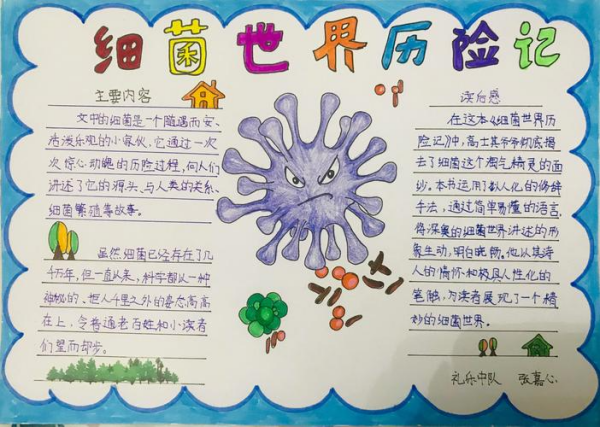 细菌世界历险记
主要内容
文中的细菌是一个随遇而安、
活泼乐观的小家伙,它通过一次
次惊心动魄的历险过程,向人们
讲述了它的源头、与人类的关系、
细菌繁殖等故事。
虽然细菌已经存在了几
千万年,但一直以来,科学都以一种
神秘的、拒人千里之外的姿态高高
在上,令普通老百姓和小读者
们望而却步。
读后感
在这本《细菌世界历
险记》中,高士其爷爷彻底揭
去了细菌这个淘气精灵的面
纱。本书运用了拟人化的修辞
手法,通过简单易懂的语言,
将深奥的细菌世界讲述的形
象生动,明白晓畅。他以其诗
人的情怀和极具人性化的
笔触,为读者展现了一个精
妙的细菌世界。
礼乐中队 张嘉心